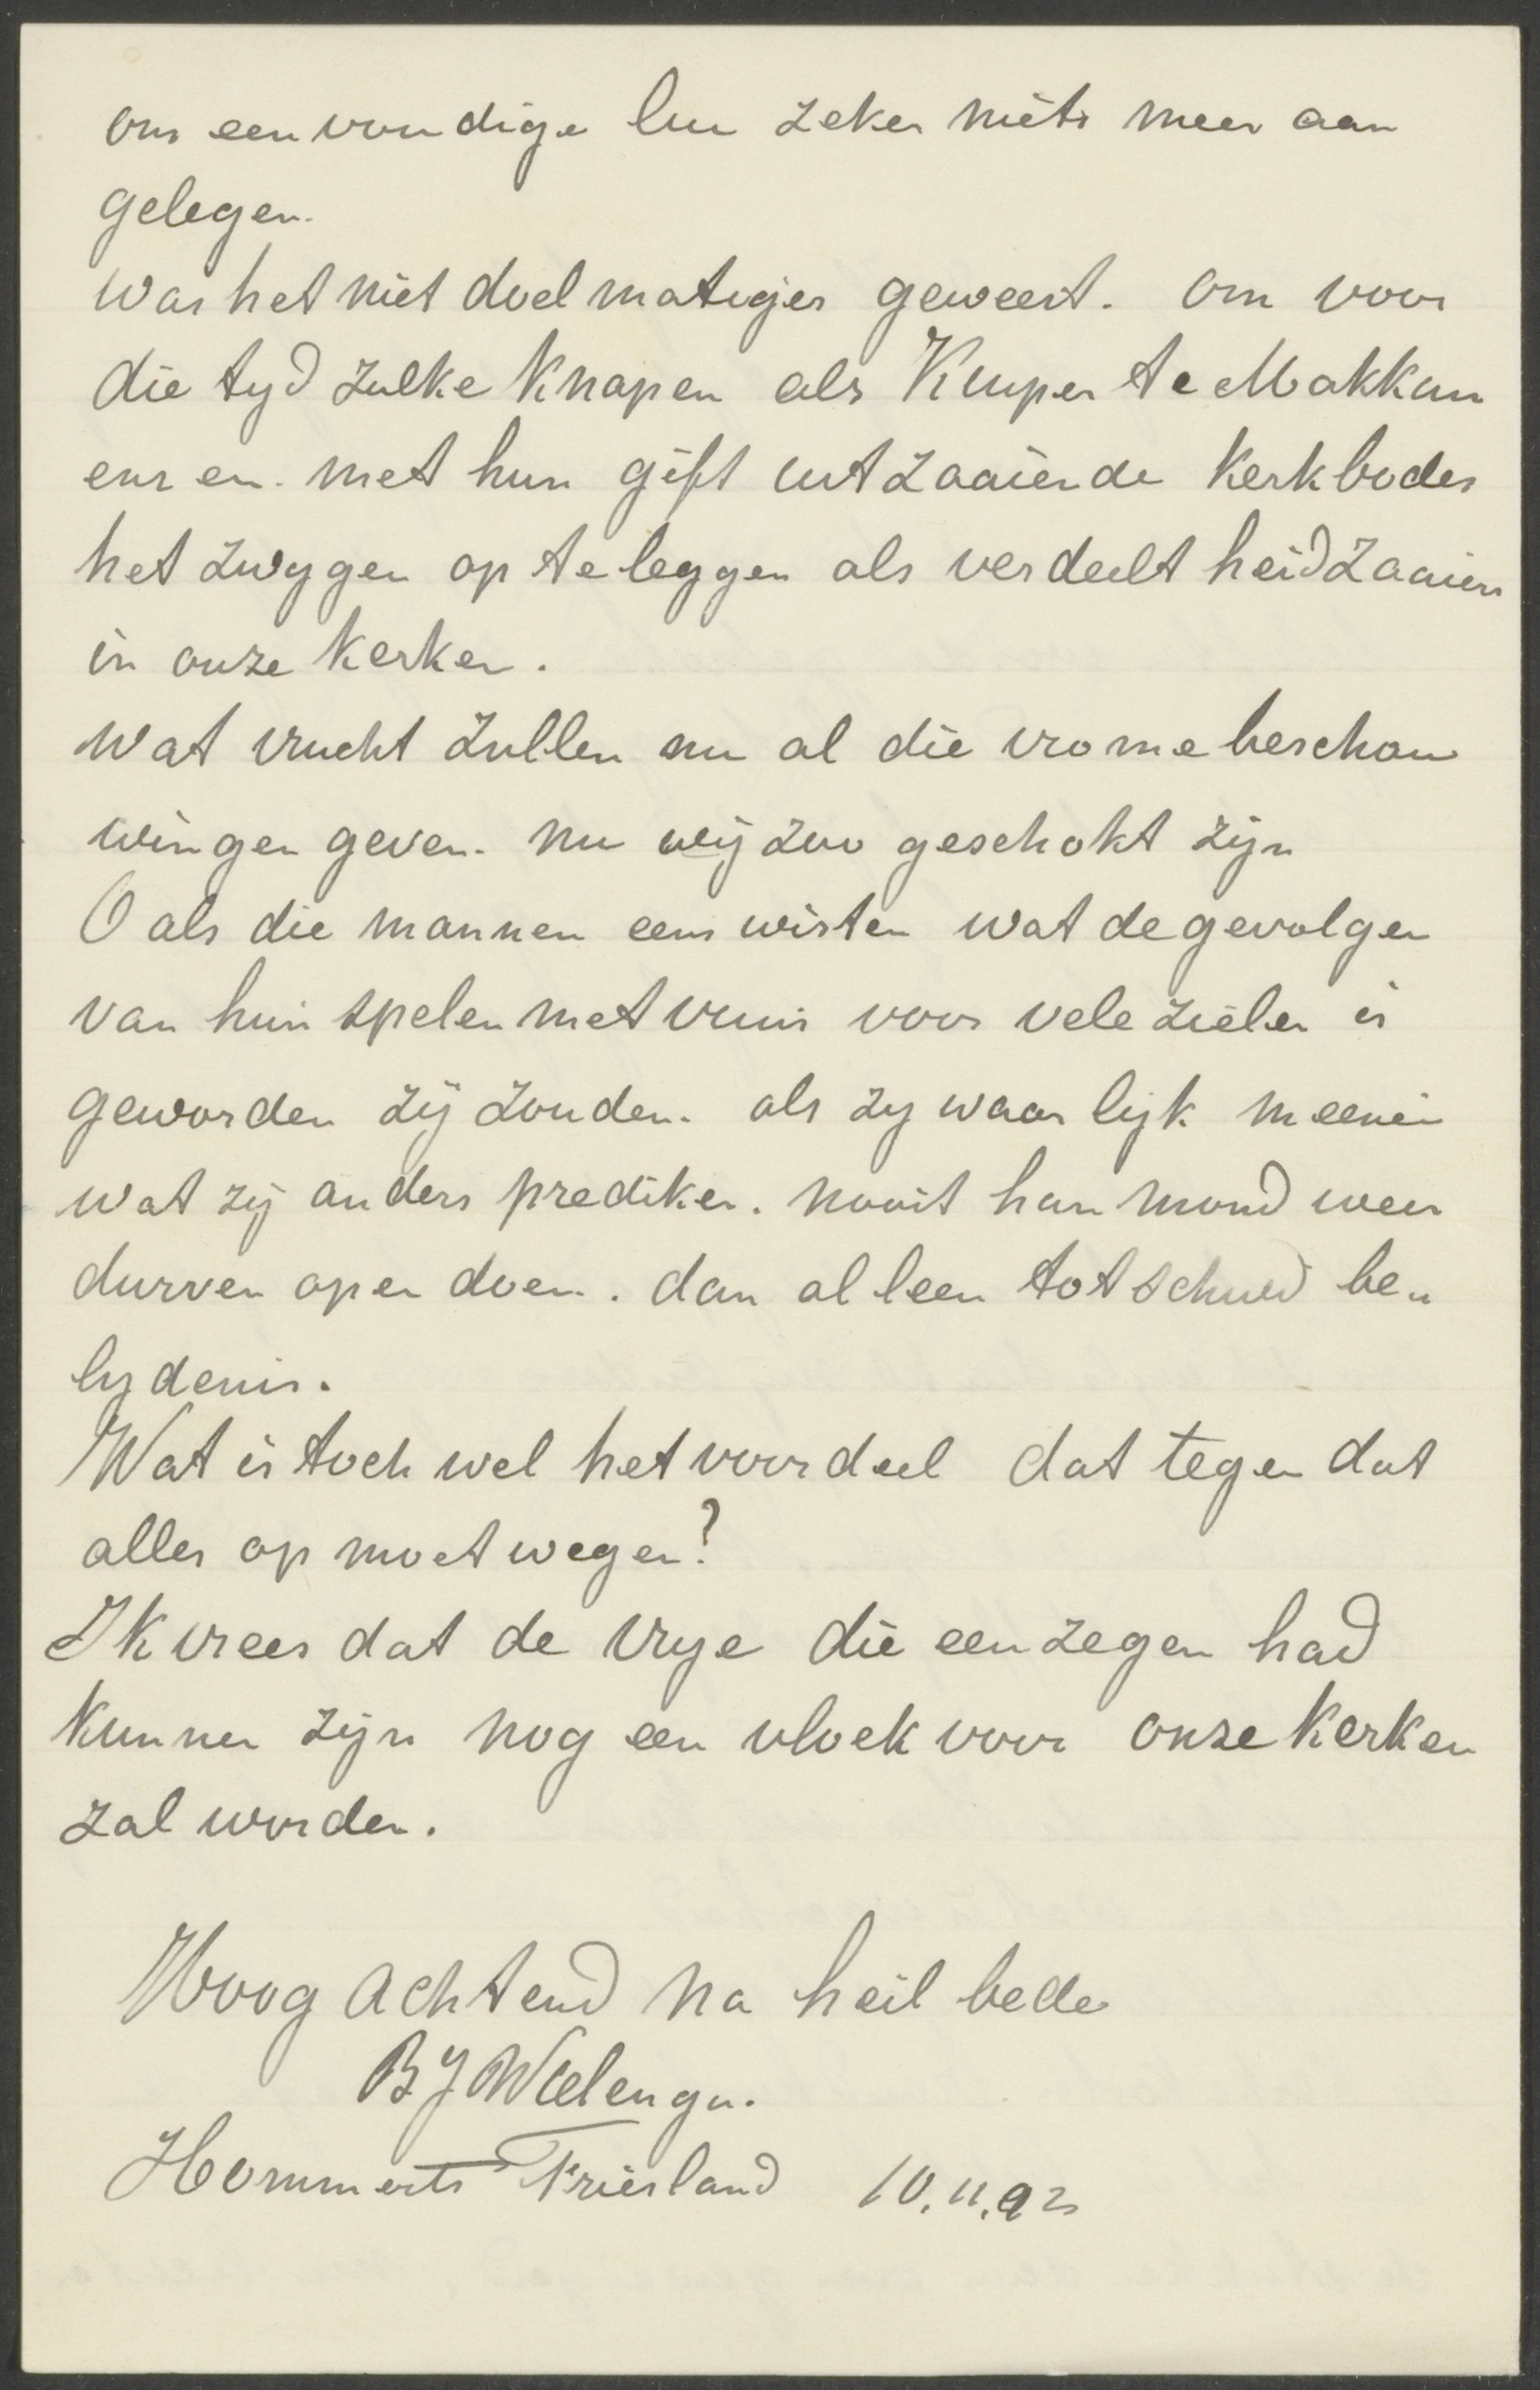 ons eenvoudige lui zeker niets meer aan
gelegen.
was het niet doelmatiger geweest. om voor
die tyd zulke knapen als Kuiper te Makkum
enz en. met hun gift uitzaaiende kerkbodes
het zwygen op te leggen als verdeeltheidzaaiers
in onze kerken.
wat vrucht zullen nu al die vrome beschou
wingen geven. nu wij zoo geschokt zijn
O als die mannen eens wisten wat de gevolgen
van hun spelen met vuur voor vele zielen is
geworden zij zouden. als zy waarlijk meenen
wat zij anders prediken. nooit hun mond weer
durven open doen. dan alleen tot schuld be„
lydenis.
Wat is toch wel het voordeel dat tegen dat
alles op moet wegen?
Ik vrees dat de vrye die een zegen had
kunnen zijn nog een vloek voor onze kerken
zal worden.
Hoog Achtend na heilbede
BJ Wielenga.
Hommerts Friesland 10.11.92